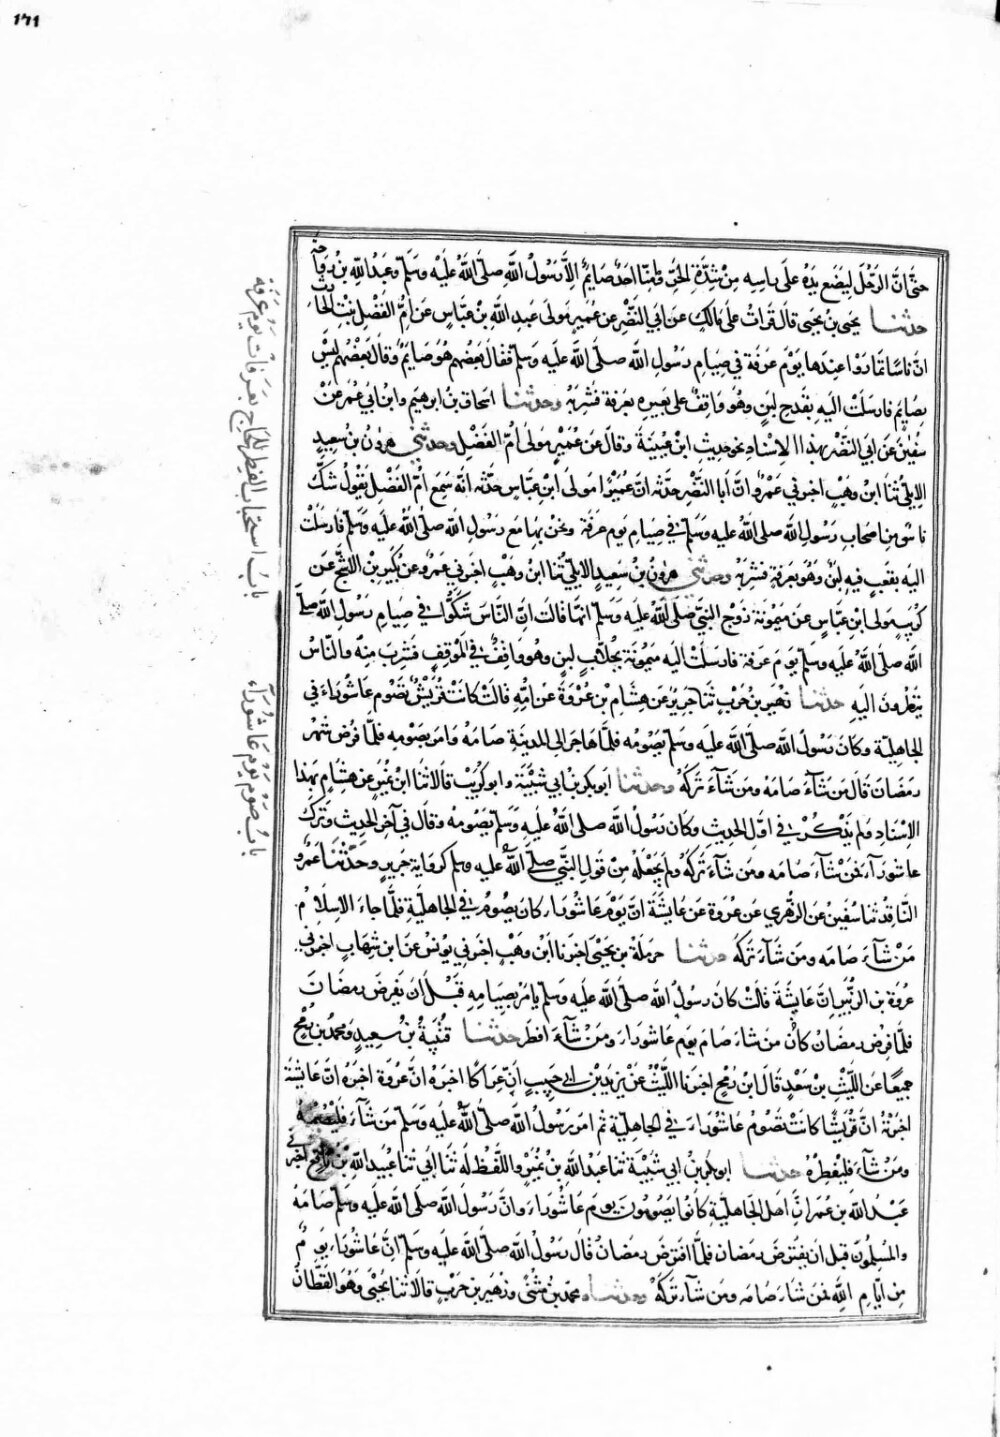 ١٧١
حتى ان الرجل ليضع يده على راسه من شدة الحر وما منا احد صايم الا رسول الله صلى الله عليه وسلم وعبد الله بن رواحة
حدثنا يحيى بن يحيى قال قرات على مالك عن ابي النضر عن عمير مولى عبد الله بن عباس عن ام الفضل بنت الحارث
ان ناسا تماروا عندها يوم عرفة في صيام رسول الله صلى الله عليه وسلم فقال بعضهم هو صايم وقال بعضهم ليس
بصايم فارسلت اليه بقدح لبن وهو واقف على بعيره بعرفة فشربه وحدثنا اسحاق بن ابرهيم وابن ابي عمر عن
سفين عن ابي النضر بهذا الاسناد نحو حديث ابن عيينة وقال عن عمير مولى ام الفضل وحدثني هرون بن سعيد
الايلي ثنا ابن وهب اخبرني عمرو ان ابا النضر حدثه ان عميرا مولى ابن عباس حدثه انه سمع ام الفضل تقول شك
ناس من اصحاب رسول الله صلى الله عليه وسلم في صيام يوم عرفة ونحن بها مع رسول الله صلى الله عليه وسلم فارسلت
اليه بقعب فيه لبن وهو بعرفة فشربه وحدثني هرون بن سعيد الايلي ثنا ابن وهب اخبرني عمرو عن بكير بن الاشج عن
كريب مولى ابن عباس عن ميمونة زوج النبي صلى الله عليه وسلم انها قالت ان الناس شكوا في صيام رسول الله صلى
الله صلى الله عليه وسلم يوم عرفة فارسلت اليه ميمونة بحلاب لبن وهو واقف في الموقف فشرب منه والناس
ينظرون اليه حدثنا زهير بن حرب ثنا جرير عن هشام بن عروة عن ابيه قالت كانت قريش تصوم عاشوراء في
الجاهلية وكان رسول الله صلى الله عليه وسلم يصومه فلما هاجر الى المدينة صامه وامر بصومه فلما فرض شهر
رمضان قال من شاء صامه ومن شاء تركه وحدثنا ابو بكر بن ابي شيبة وابو كريب قالا ثنا ابن نمير عن هشام بهذا
الاسناد ولم يذكر في اول الحديث وكان رسول الله صلى الله عليه وسلم يصومه وقال في آخر الحديث وترك
عاشوراء فمن شاء صامه ومن شاء تركه ولم يجعله من قول النبي صلى الله عليه وسلم كرواية جرير وحدثنا عمرو
الناقد ثنا سفين عن الزهري عن عروة عن عايشة ان يوم عاشوراء كان يصوم في الجاهلية فلما جاء الاسلام
من شاء صامه ومن شاء تركه حدثنا حرملة بن يحيى اخبرنا ابن وهب اخبرني يونس عن ابن شهاب اخبرني
عروة بن الزبير ان عايشة قالت كان رسول الله صلى الله عليه وسلم يامر بصيامه قبل ان يفرض رمضان
فلما فرض رمضان كان من شاء صام يوم عاشوراء ومن شاء افطر حدثنا قتيبة بن سعيد ومحمد بن رمح
جميعا عن الليث بن سعد قال ابن رمح اخبرنا الليث عن يزيد بن ابي حبيب ان عراكا اخبره ان عروة اخبره ان عايشة
اخبرته ان قريشا كانت تصوم عاشوراء في الجاهلية ثم امر رسول الله صلى الله عليه وسلم من شاء فليصمه
ومن شاء فليفطره حدثنا ابو بكر بن ابي شيبة ثنا عبد الله بن نمير واللفظ له ثنا ابي ثنا عبيد الله بن نافع اخبرني
عبد الله بن عمر ان اهل الجاهلية كانوا يصومون يوم عاشوراء وان رسول الله صلى الله عليه وسلم صامه
والمسلمون قبل ان يفترض رمضان فلما افترض رمضان قال رسول الله صلى الله عليه وسلم ان عاشوراء يوم
من ايام الله فمن شاء صامه ومن شاء تركه وحدثنا ومحمد بن مثنى وزهير بن حرب قالا ثنا يحيى وهو القطان
باب استحباب الفطر للحاج بعرفات يوم عرفة
باب صوم يوم عاشوراء